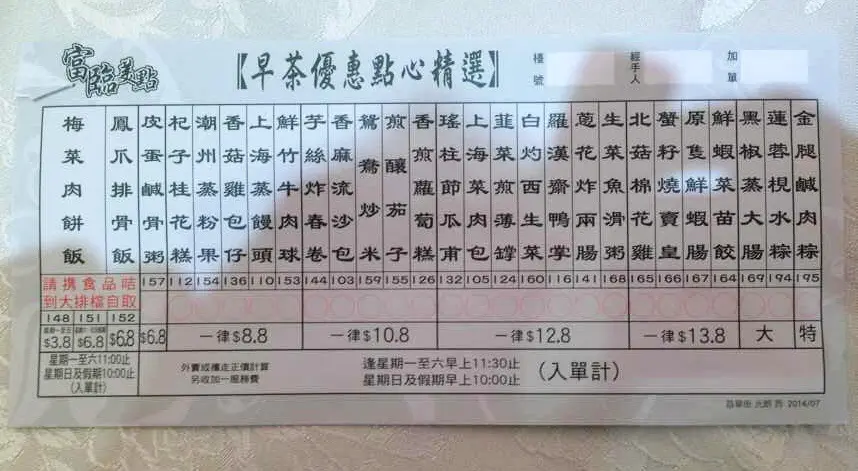 富臨美點
【早茶優惠點心精選】
檯號
經手人
加單
梅菜肉餅飯
鳳爪排骨飯
皮蛋鹹骨粥
杞子桂花糕
潮州蒸粉果
香菇雞包仔
上海蒸饅頭
鮮竹牛肉球
芋絲炸春卷
香麻流沙包
鴛鴦炒米
煎釀茄子
香煎蘿蔔糕
瑤柱節瓜甫
上海菜肉包
韮菜煎薄罉
白灼西生菜
羅漢齋鴨掌
蔥花炸兩腸
生菜魚滑粥
北菇棉花雞
蟹籽燒賣皇
原隻鮮蝦腸
鮮蝦菜苗餃
黑椒蒸大腸
蓮蓉梘水粽
金腿鹹肉粽
請携食品咭
到大排檔自取
157 112 154 136 110 153 144 103 159 155 126 132 105 124 160 116 141 168 165 166 167 164 169 194 195
148 151 152
$3.8 $6.8 $6.8 $6.8 一律$8.8 一律$10.8 一律$12.8 一律$13.8 大 特
星期一至六11:00止
星期日及假期10:00止
(入單計)
外賣或攜走正價計算
另收加一服務費
逢星期一至六早上11:30止
星期日及假期早上10:00止
(入單計)
2014/07